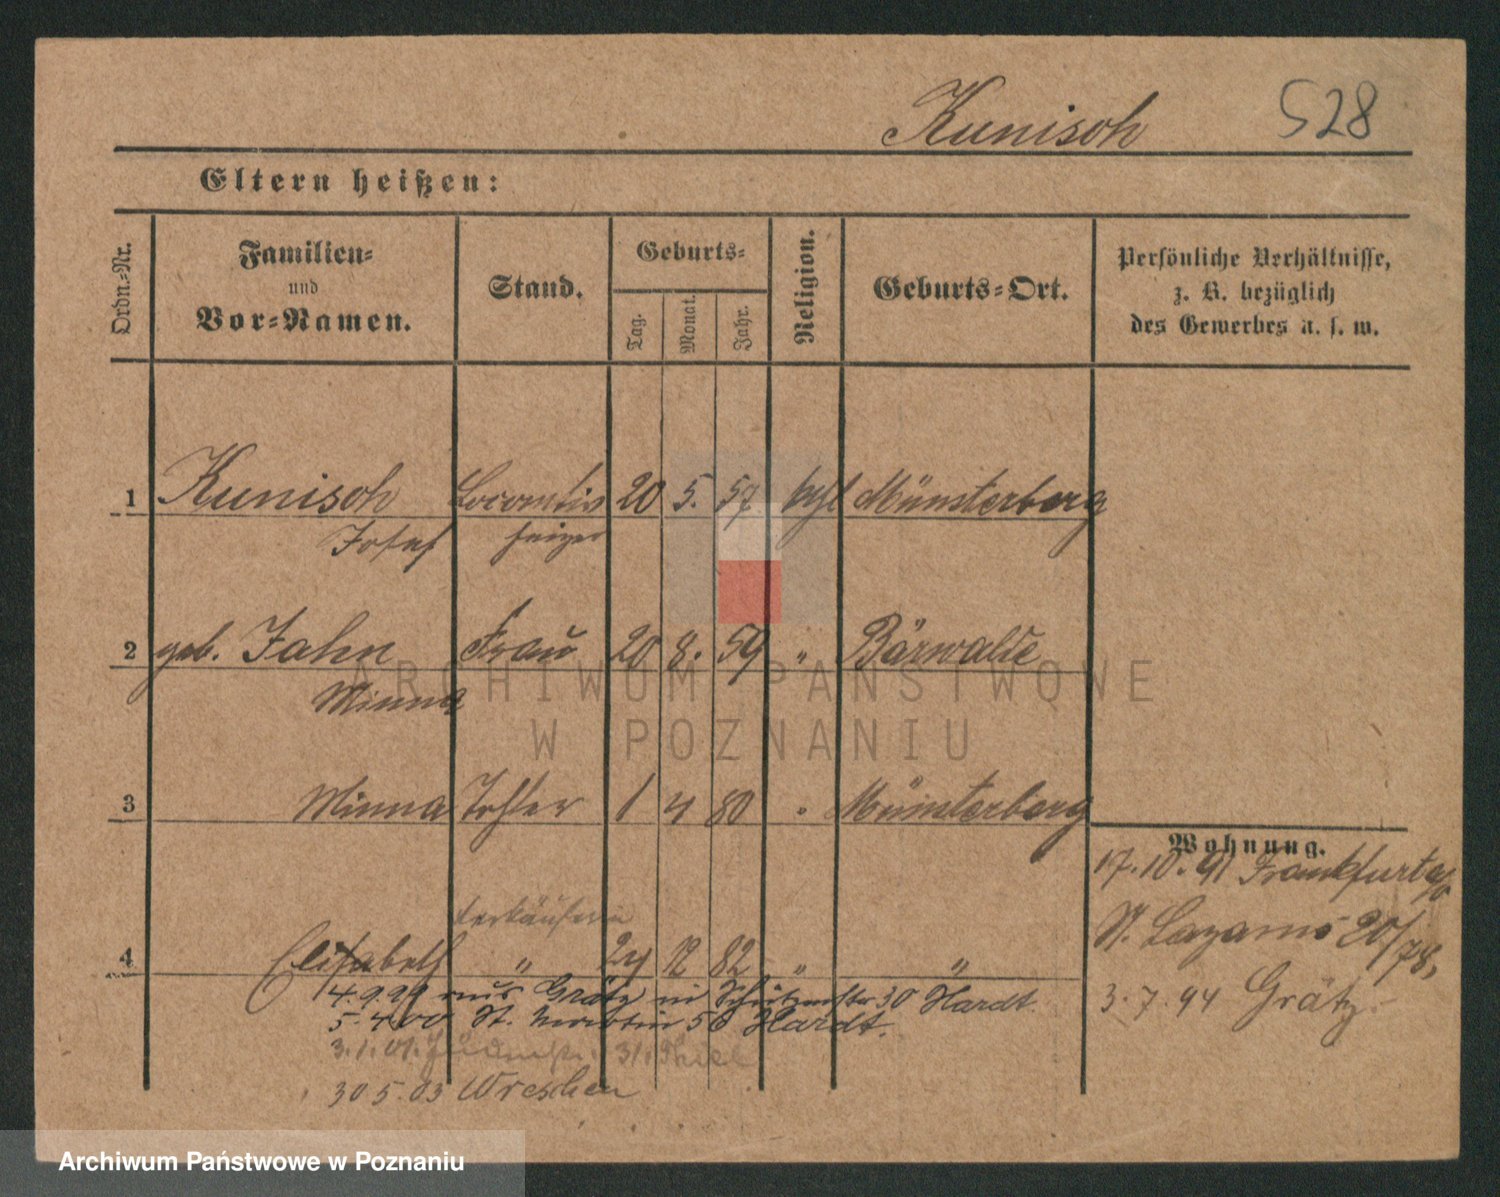 Kunisch 528
Eltern heißen:
Ordn.-Nr. Familien- und Vor-Namen. Stand. Geburts- Tag. Monat. Jahr. Religion. Geburts-Ort. Persönliche Verhältnisse, z. B. bezüglich des Gewerbes u. s. w.
1 Kunisch Locomtiv 20 5. 57 kgl Münsterberg
Josef heizer
2 geb. Jahn Frau 20 8. 59 " Bärwalde
Minna
3 Minna Tochter 1 4 80 " Münsterberg
Wohnung.
17. 10. 91 Frankfurt a/O
Verkäuferin
St. Lazarus 20/78,
4 Elisabeth " 24 12 82 " "
14. 9. 99 aus Grätz in Schützenstr 30 Hardt
3. 7. 94 Grätz.
5. 4 00 St. Martin 56 Hardt.
3. 1. 01. 31. Thiel
30 5. 03 Wreschen
ARCHIWUM PAŃSTWOWE
W POZNANIU
Archiwum Państwowe w Poznaniu